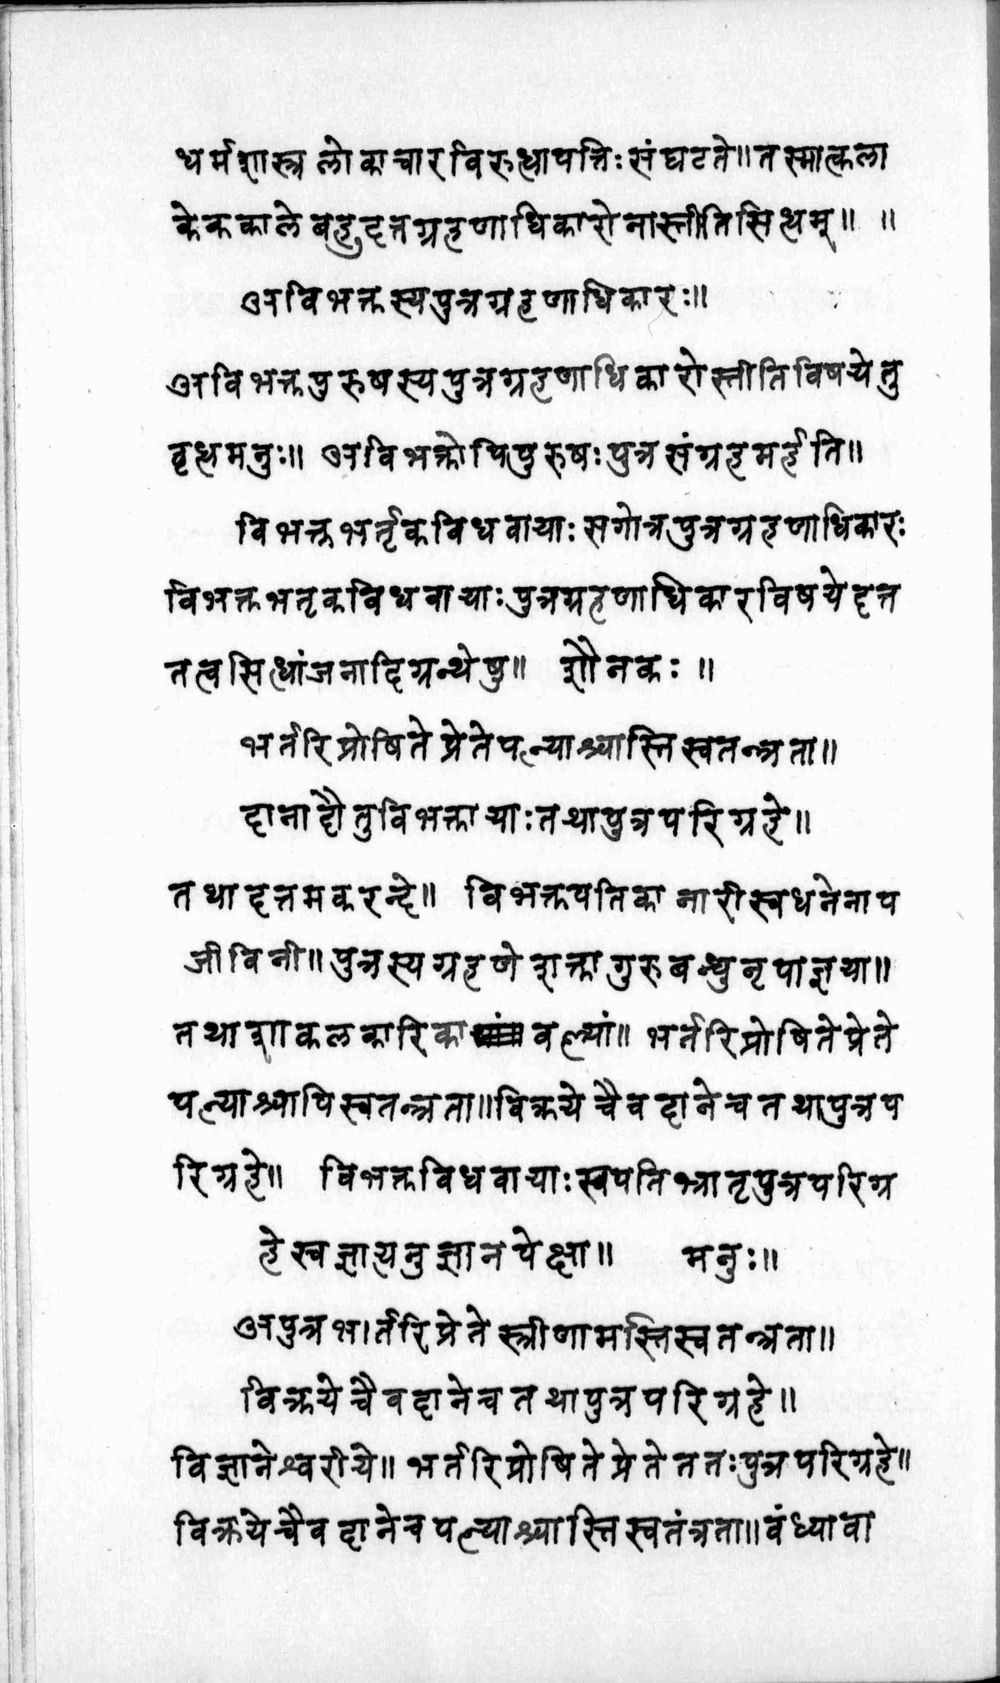 धर्मशास्त्रलोकाचारविरुध्धापत्तिःसंघटते॥तस्मात्कला
केककालेबहुदत्तग्रहणाधिकारोनास्तीतिसिध्धम्॥ ॥
अविभक्तस्यपुत्रग्रहणाधिकारः॥
अविभक्तपुरुषस्यपुत्रग्रहणाधिकारोस्तीतिविषयेतु
वृध्धमनुः॥ अविभक्तोपिपुरुषःपुत्रसंग्रहमर्हति॥
विभक्तभर्तृकविधवायाःसगोत्रपुत्रग्रहणाधिकारः
विभक्तभतृकविधवायाःपुत्रग्रहणाधिकारविषयेदत्त
तत्वसिध्धांजनादिग्रन्थेषु॥ शौनकः॥
भर्तरिप्रोषितेप्रेतेपत्न्याश्चास्तिस्वतन्त्रता॥
दानादौतुविभक्तायाःतथापुत्रपरिग्रहे॥
तथादत्तमकरन्दे॥ विभक्तपतिकानारीस्वधनेनाप
जीविनी॥पुत्रस्यग्रहणेशक्तागुरुबन्धुनृपाज्ञया॥
तथाशाकलकारिकावल्यां॥ भर्तरिप्रोषितेप्रेते
पत्न्याश्चापिस्वतन्त्रता॥विक्रयेचैवदानेचतथापुत्रप
रिग्रहे॥ विभक्तविधवायाःस्वपतिभ्रातृपुत्रपरिग्र
हेस्वज्ञात्यनुज्ञानपेक्षा॥ मनुः॥
अपुत्रभार्तरिप्रेतेस्त्रीणामस्तिस्वतन्त्रता॥
विक्रयेचैवदानेचतथापुत्रपरिग्रहे॥
विज्ञानेश्वरीये॥ भर्तरिप्रोषितेप्रेतेततःपुत्रपरिग्रहे॥
विक्रयेचैवदानेचपत्न्याश्चास्तिस्वतंत्रता॥वंध्यावा